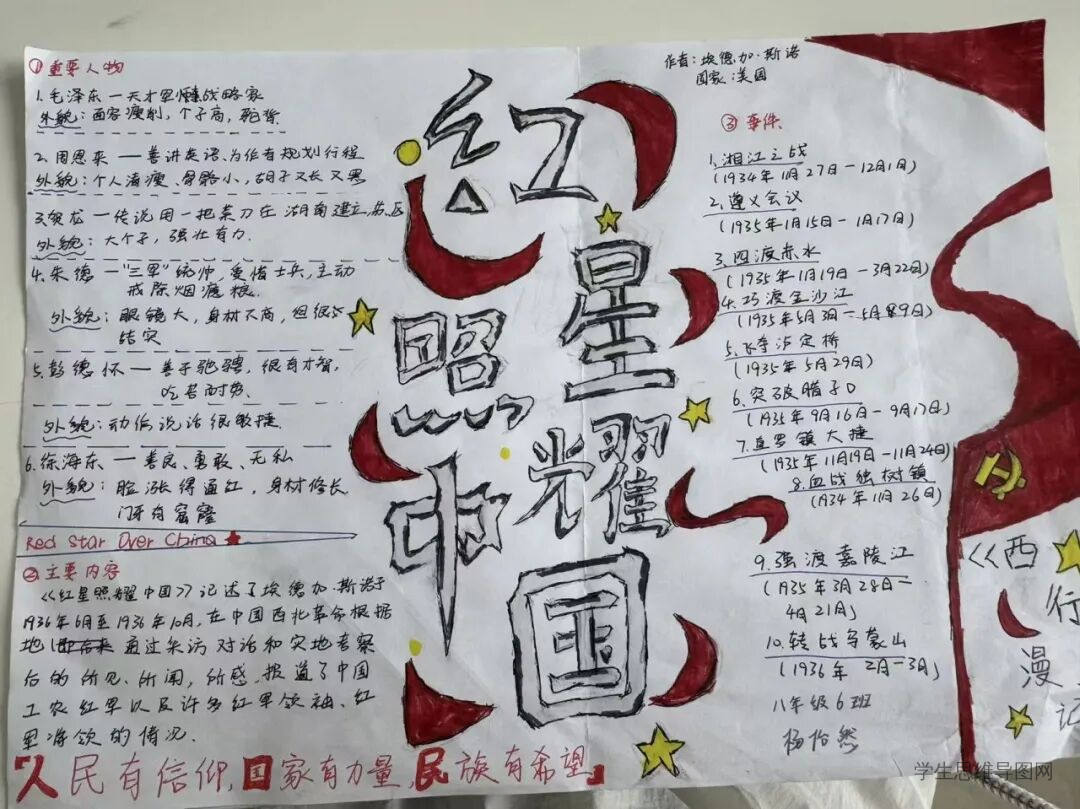 ①重要人物
1.毛泽东一天才军事战略家
外貌：面容瘦削，个子高，驼背
2.周恩来——善讲英语、为作者规划行程
外貌：个人清瘦、骨骼小，胡子又长又黑
3.贺龙一传说用一把菜刀在湖南建立苏区
外貌：大个子，强壮有力.
4.朱德一"三军"统帅，爱惜士兵，主动
戒除烟瘾.
外貌：眼镜大，身材不高，但很
结实
5.彭德怀一善于驰骋，很有才智，
吃苦耐劳.
外貌：动作说话很敏捷.
6.徐海东一善良、勇敢、无私
外貌：脸涨得通红，身材修长
门牙有窟窿
Red Star Over China
②主要内容
《红星照耀中国》记述了埃德加·斯诺于
1936年6月至1936年10月，在中国西北革命根据
地 通过采访对话和实地考察
后的所见、所闻，所感，报道了中国
工农红军以及许多红军领袖、红
军将领的情况.
『人民有信仰，国家有力量，民族有希望』
红星照耀中国
作者：埃德加·斯诺
国家：美国
③事件
1.湘江之战
(1934年11月27日一12月1日)
2.遵义会议
(1935年1月15日一1月17日)
3.四渡赤水
(1935年1月19日一3月22日)
4.巧渡金沙江
(1935年5月3日一5月9日)
5.飞夺泸定桥
(1935年5月29日)
6.突破腊子口
(1935年9月16日一9月17日)
7.直罗镇大捷
(1935年11月19日一11月24日)
8.血战独树镇
(1934年11月26日)
9.强渡嘉陵江
(1935年3月28日一
4月21日)
10.转战乌蒙山
(1936年2月一3月)
八年级6班
杨怡然
《西
行
漫
记
学生思维导图网